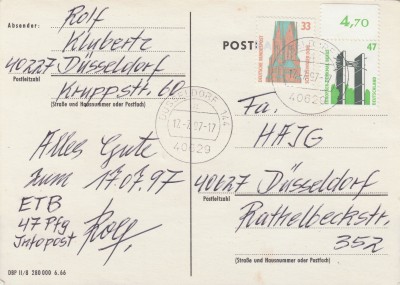 Absender: Rolf
Klubertz
40227 Düsseldorf
Postleitzahl
Kruppstr. 60
(Straße und Hausnummer oder Postfach)
Alles Gute
zum 17.07.97
ETB
47 Pfg
Infopost Rolf
DBP II/8 280 000 6.66
POST
33
DEUTSCHE BUNDESPOST
4,70
47
DEUTSCHLAND
DÜSSELDORF 144
17.-7.97-17
40629
17.-7.97-17
40629
Fa.
HAJG
40627 Düsseldorf
Postleitzahl
Rathelbeckstr.
352
(Straße und Hausnummer oder Postfach)